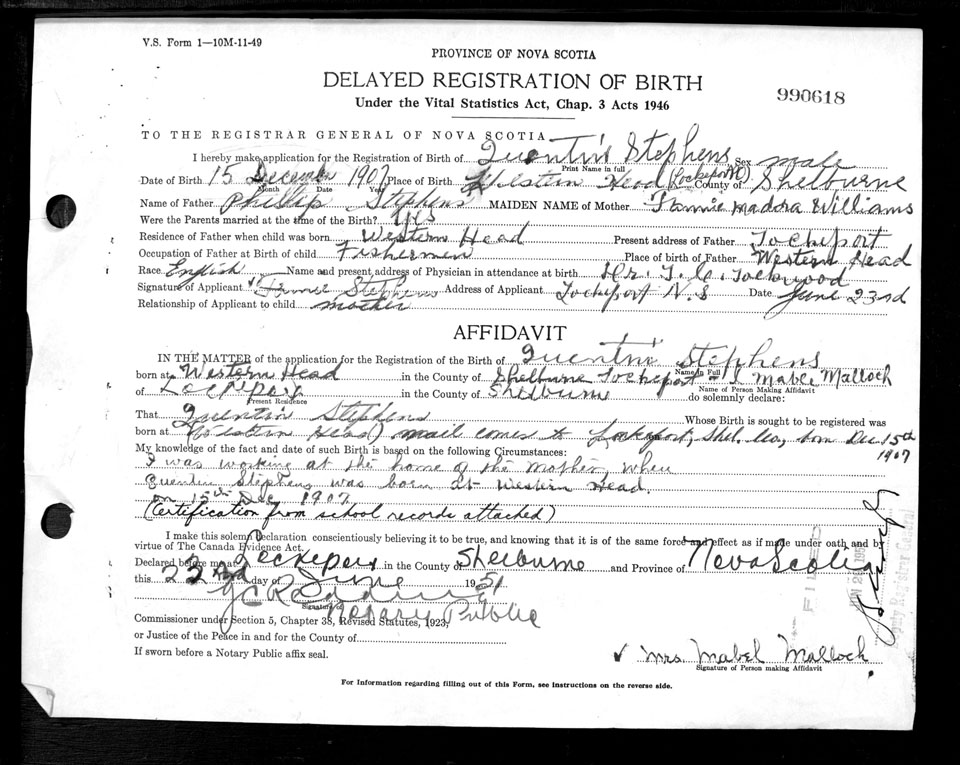 V.S. Form 1—10M-11-49
PROVINCE OF NOVA SCOTIA
DELAYED REGISTRATION OF BIRTH
990618
Under the Vital Statistics Act, Chap. 3 Acts 1946
TO THE REGISTRAR GENERAL OF NOVA SCOTIA
I hereby make application for the Registration of Birth of Quentin Stephens Sex male
Print Name in full
Date of Birth 15 December 1907 Place of Birth Western Head (Lockeport) County of Shelburne
Month Date Year
Name of Father Phillip Stephens MAIDEN NAME of Mother Fannie Madora Williams
Were the Parents married at the time of the Birth? Yes
Residence of Father when child was born Western Head Present address of Father Lockeport
Occupation of Father at Birth of child Fishermen Place of birth of Father Western Head
Race English Name and present address of Physician in attendance at birth Dr. Lockwood
Signature of Applicant Fannie Stephens Address of Applicant Lockeport N.S Date June 23rd
Relationship of Applicant to child mother
AFFIDAVIT
IN THE MATTER of the application for the Registration of the Birth of Quentin Stephens
Name in Full
born at Western Head in the County of Shelburne Lockeport I Mable Malloch
Name of Person Making Affidavit
of Lockeport in the County of Shelburne do solemnly declare:
Present Residence
That Quentin Stephens Whose Birth is sought to be registered was
born at Western Head) mail comes to Lockeport, Shel. Co, born Dec 15th
1907
My knowledge of the fact and date of such Birth is based on the following Circumstances:
I was working at the home of the mother, when
Quentin Stephens was born at Western Head.
on 15th Dec 1907
(Certification from school records attached)
I make this solemn Declaration conscientiously believing it to be true, and knowing that it is of the same force and effect as if made under oath and by
virtue of The Canada Evidence Act.
Declared before me at Lockeport in the County of Shelburne and Province of Nova Scotia
this 22nd day of June 1951
Signature of
Notary Public
Commissioner under Section 5, Chapter 38, Revised Statutes, 1923,
or Justice of the Peace in and for the County of
If sworn before a Notary Public affix seal.
Mrs. Mabel Malloch
Signature of Person making Affidavit
FILED
Deputy Registrar General
For Information regarding filling out of this Form, see instructions on the reverse side.